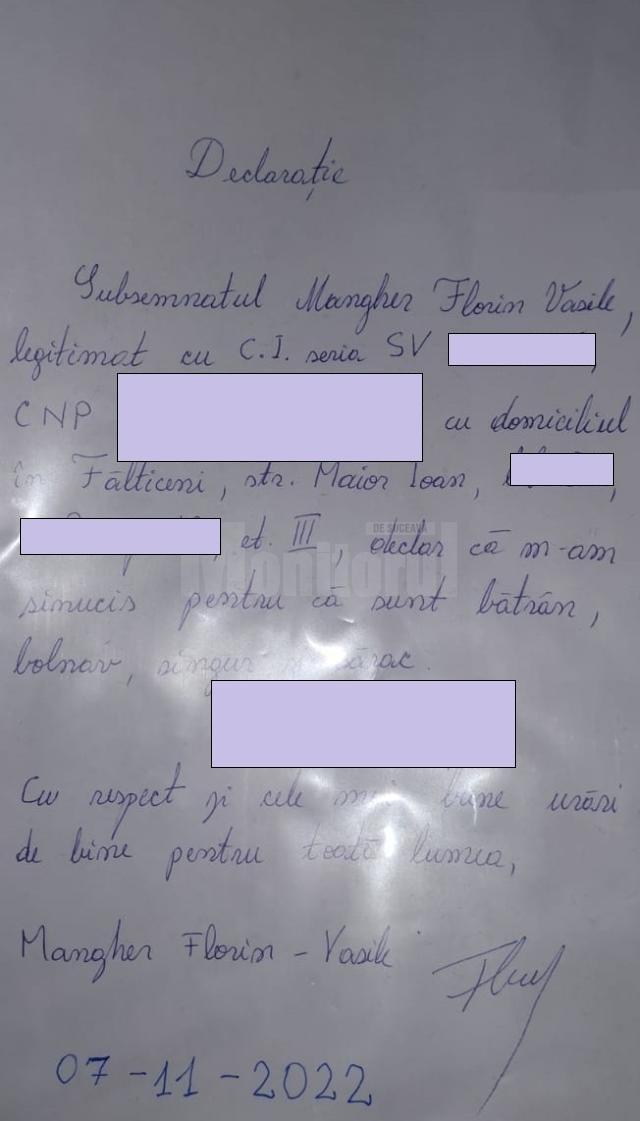 Declarație
Subsemnatul Mangher Florin Vasile,
legitimat cu C.I. seria SV
CNP cu domiciliul
în Fălticeni, str. Maior Ioan,
et. III, declar că m-am
DE SUCEAVA
Monitorul
sinucis pentru că sunt bătrân,
bolnav, singur și sărac.
Cu respect și cele mai bune urări
de bine pentru toată lumea,
Mangher Florin - Vasile
07-11-2022